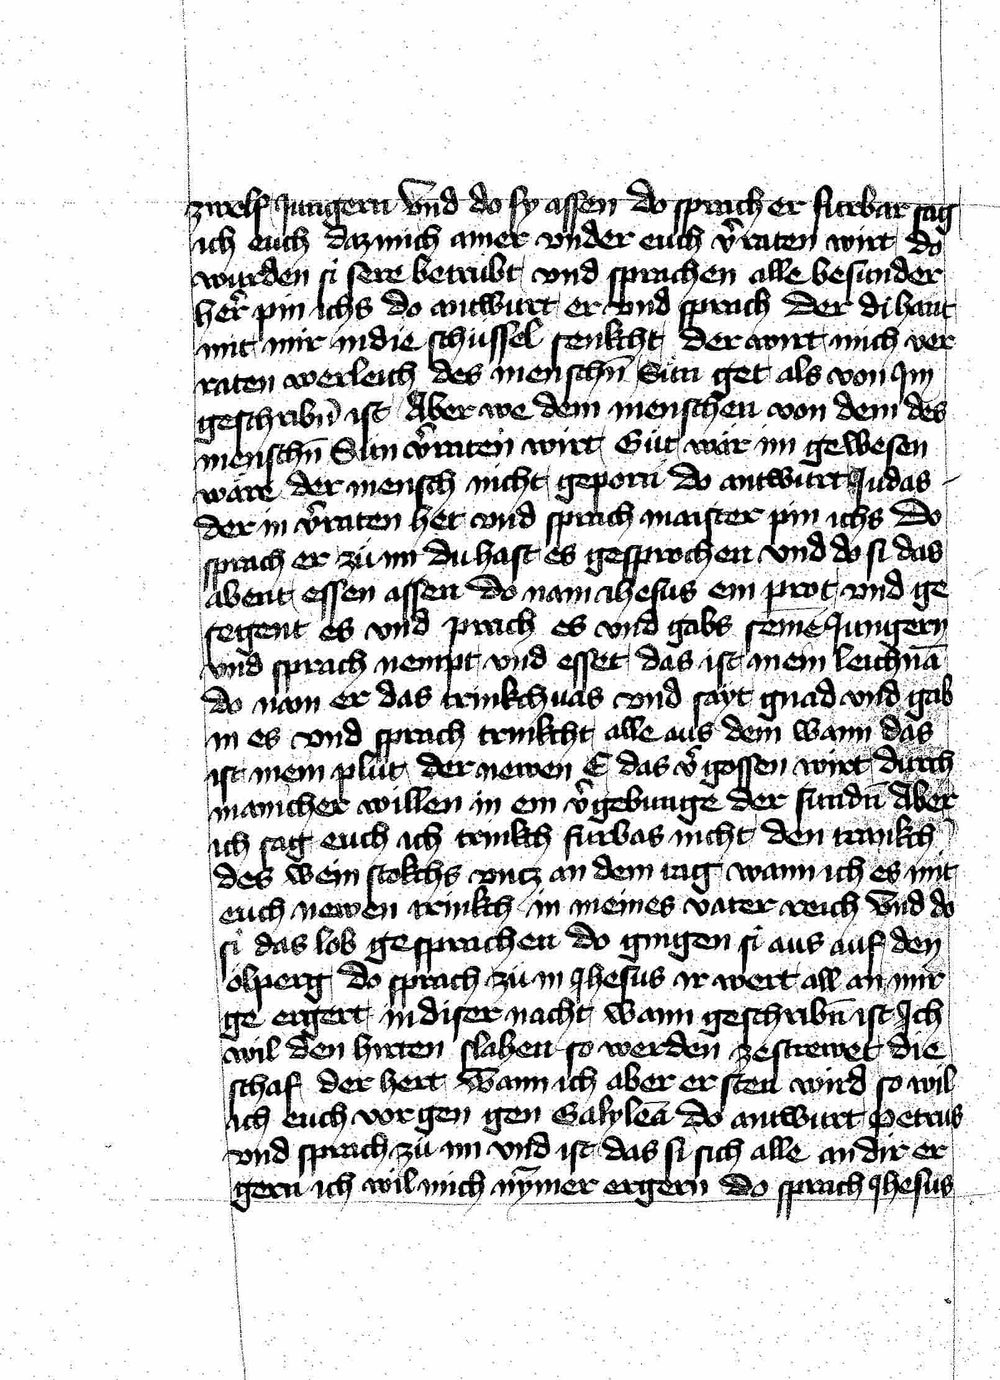 zwelf Jungern Vnd do sy assen do sprach er furbar sag
ich euch daz mich ainer vnder euch v̂raten wirt do
wurden si sere betrubt vnd sprachen alle besunder
her̂ pin ichs do antwurt er vnd sprach der di hant
mit mir in die schussel senkcht der wirt mich ver
raten werleich des menschn̄ Sun get als von Im
geschribn̄ ist Aber we dem menschen von dem des
menschn̄ Sun v̂raten wirt Güt wär im gewesen
wäre der mensch nicht geporn do antwurt Judas
der in v̂raten het vnd sprach maister pin ichs Do
sprach er zü im du hast es gesprochen vnd do si das
abent essen assen do nam ihesus ein prot vnd ge
segent es vnd prach es vnd gabs seinē Jungern
vnd sprach nempt vnd esset das ist mein leichnā
do nam er das trinkchuas vnd sayt gnad vnd gab
in es vnd sprach trinkcht alle aus dem wann das
ist mein plüt der newen E das v̂gossen wirt durch
manicher willen in ein v̂gebunge der sundn̄ Aber
ich sag euch ich trinkch furbas nicht den trankch
des wein stokchs vncz an dem tag wann ich es mit
euch newen trinkch in meines vater reich Vnd do
si das lob gesprachen do gingen si aus auf den
ölperg do sprach zü in Jhesus ir wert all an mir
ge ergert in diser nacht wann geschribn̄ ist Ich
wil den hirten slahen so werden zestrewet die
schaf der hert Wann ich aber ersten wird so wil
ich euch vor gen gen Galyleā do antwurt Petrus
vnd sprach zü im vnd ist das si sich alle an dir er
gern ich wil mich nȳmer ergern do sprach Jhesus